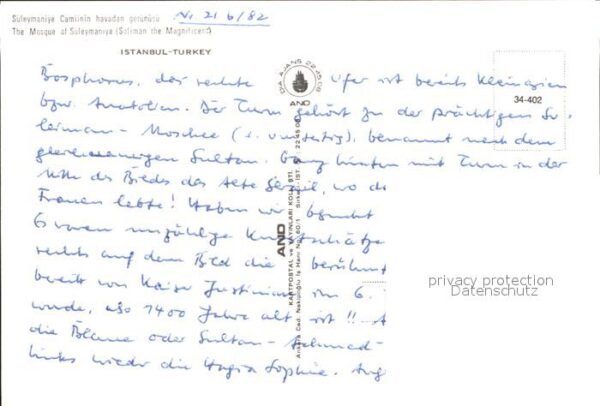 Süleymaniye Camiinin havadan görünüşü
Nr 21 6/82
The Mosque of Süleymaniye (Soliman the Magnificent)
ISTANBUL-TURKEY
Bosphorus, das rechte Ufer ist bereits Kleinasien
bzw. Anatolien. Der Turm gehört zu der prächtigen Su-
leiman-Moschee (s. vorderseitig), benannt nach dem
gleichnamigen Sultan. Ganz hinten mit Turm in der
Mitte des Bildes das alte Serail, wo di
Frauen lebte! Haben wir
Es waren unzählige Kunstschätze
rechts auf dem Bild die berühmt
bereits von Kaiser Justinian im 6.
wurde, also 1400 Jahre alt ist!!
die Blaue oder Sultan-Achmed-
links wieder die Hagia Sophia.
AND AJANS 22 45 08
AND
34-402
AND
KARTPOSTAL ve YAYINLARI KOLL. ŞTİ.
Ankara Cad. Nakipoğlu İş Hanı No. 60/1 Sirkeci - İST.
privacy protection
Datenschutz